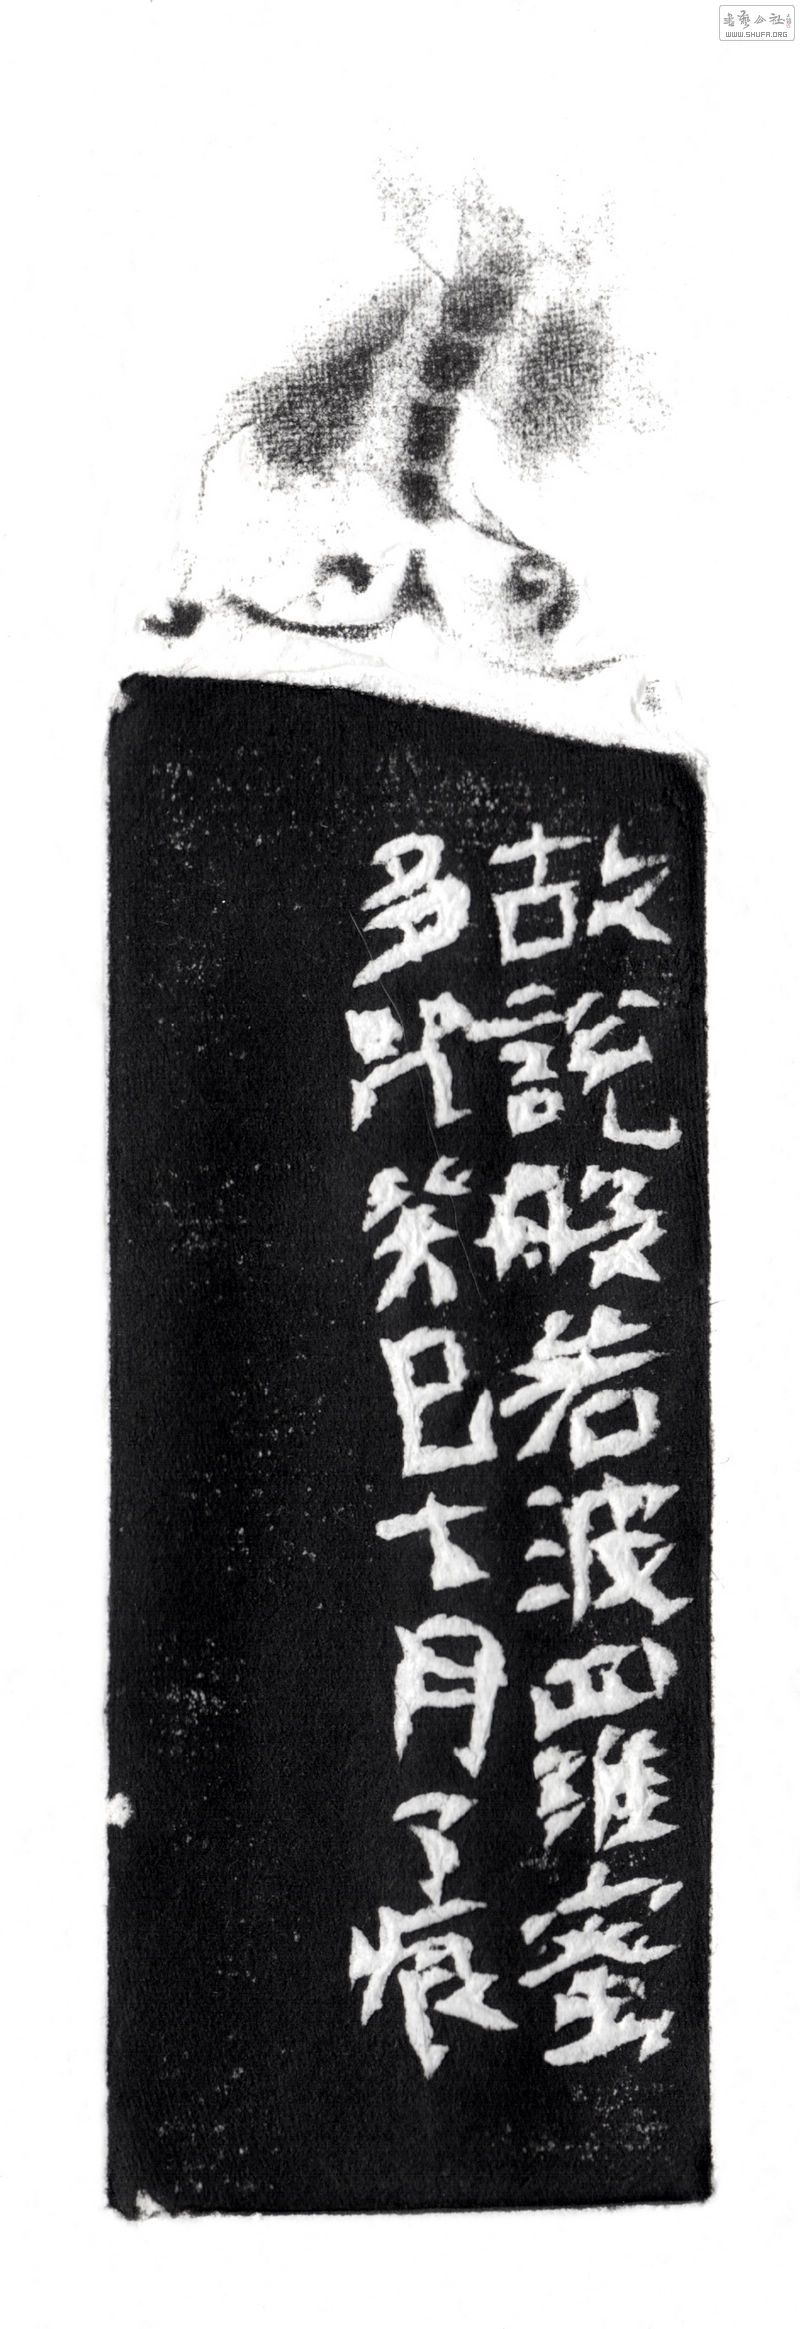 書藝公社
WWW.SHUFA.ORG
故說般若波羅蜜
多咒癸巳月了痕